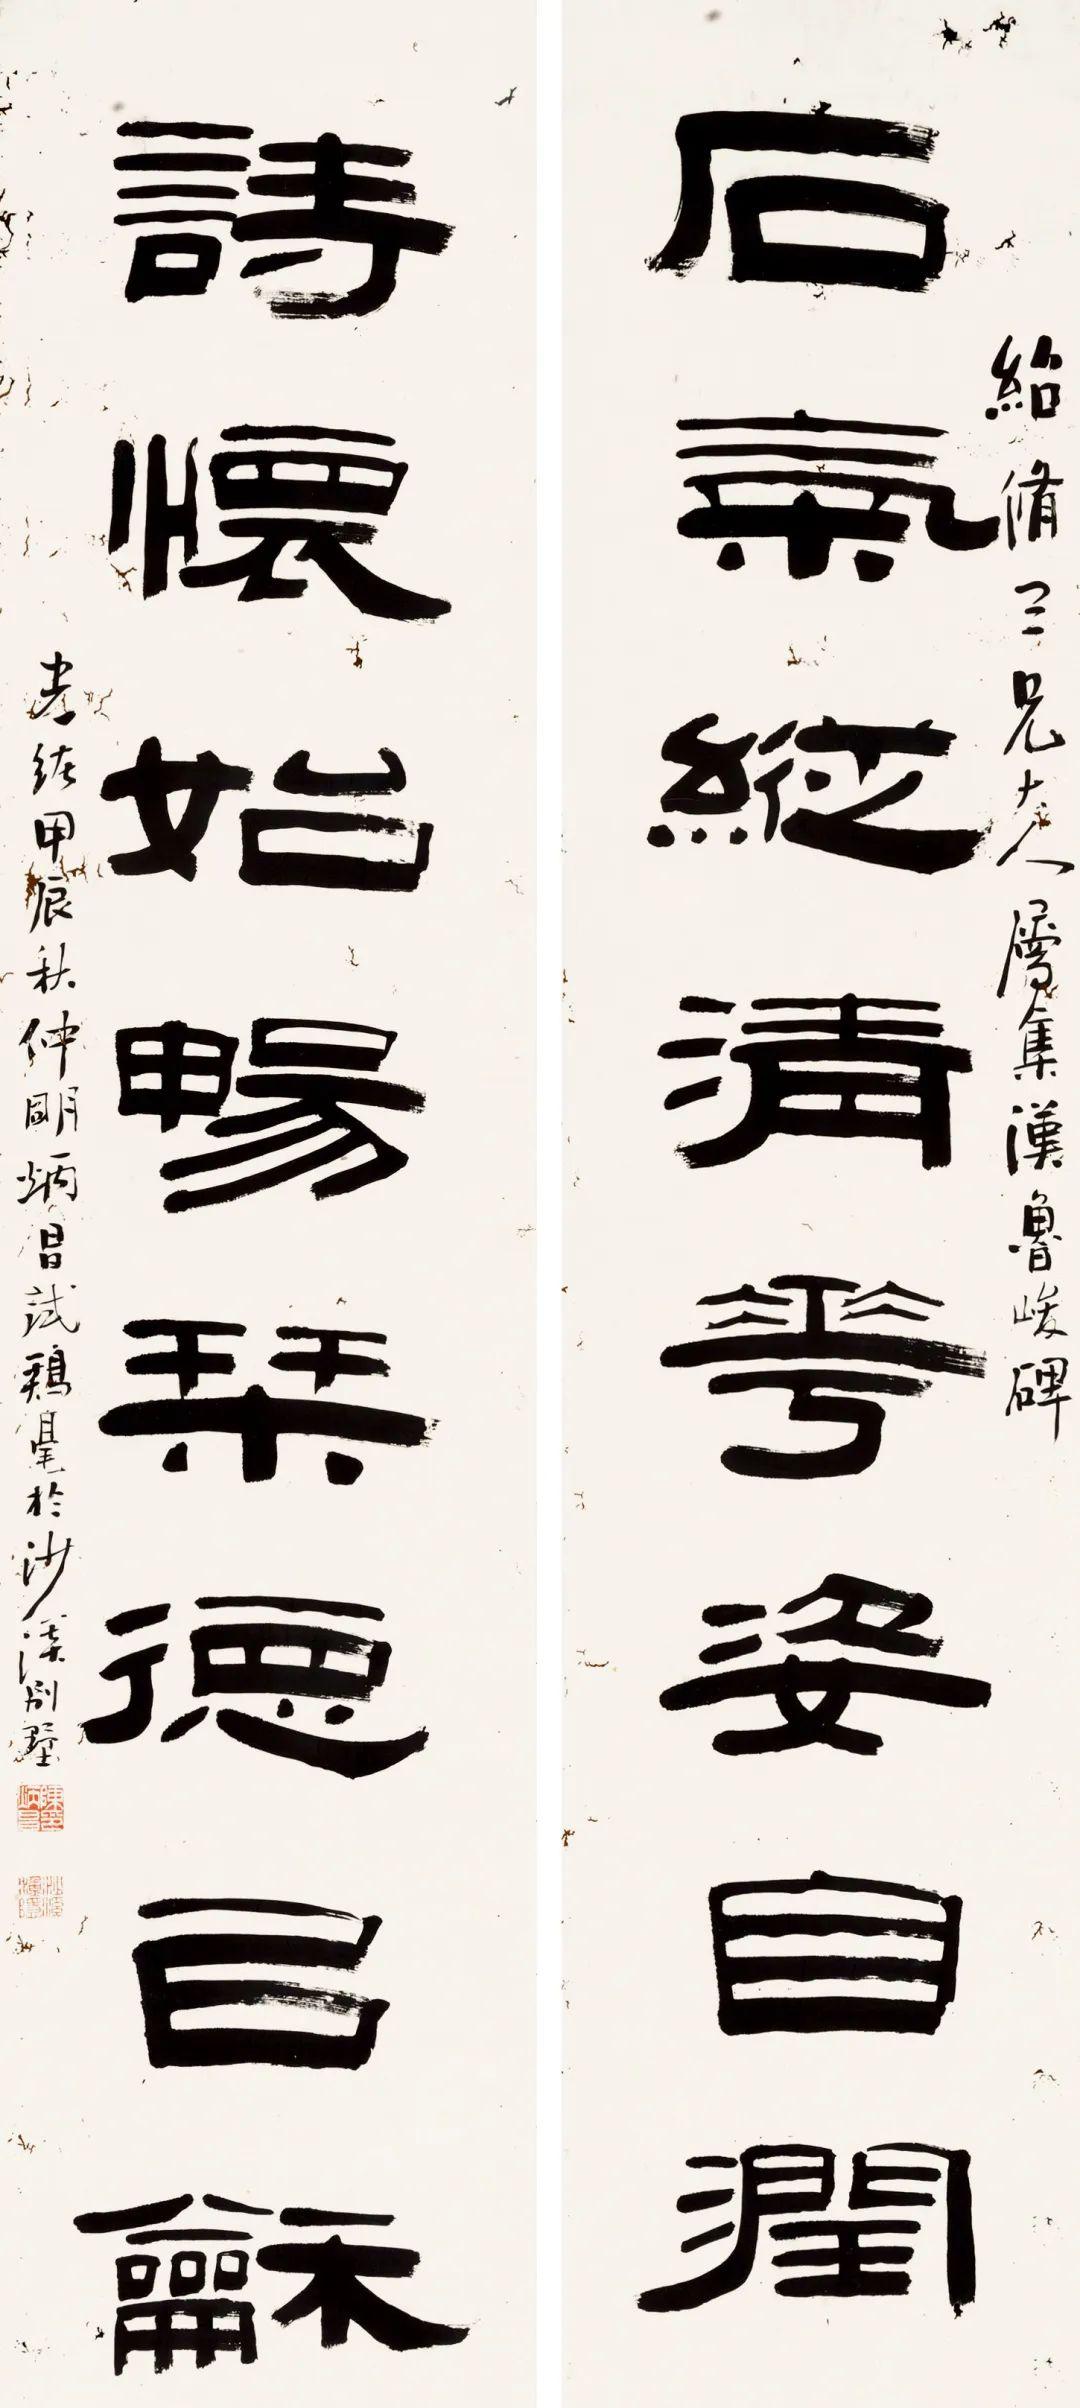 紹脩三兄大人屬集漢魯峻碑
石氣縱清華姿自潤
詩懷始暢琹德已龢
光緒甲辰秋仲朙炳昌試鷄毫於沙溪別墅